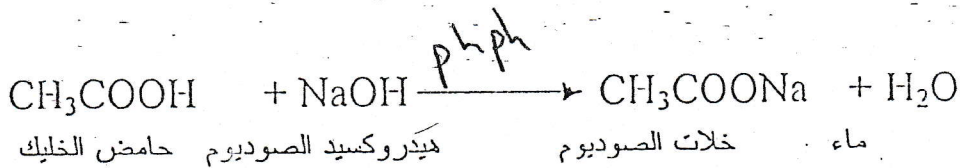 phph
CH₃COOH + NaOH → CH₃COONa + H₂O
حامض الخليك هيدروكسيد الصوديوم خلات الصوديوم ماء